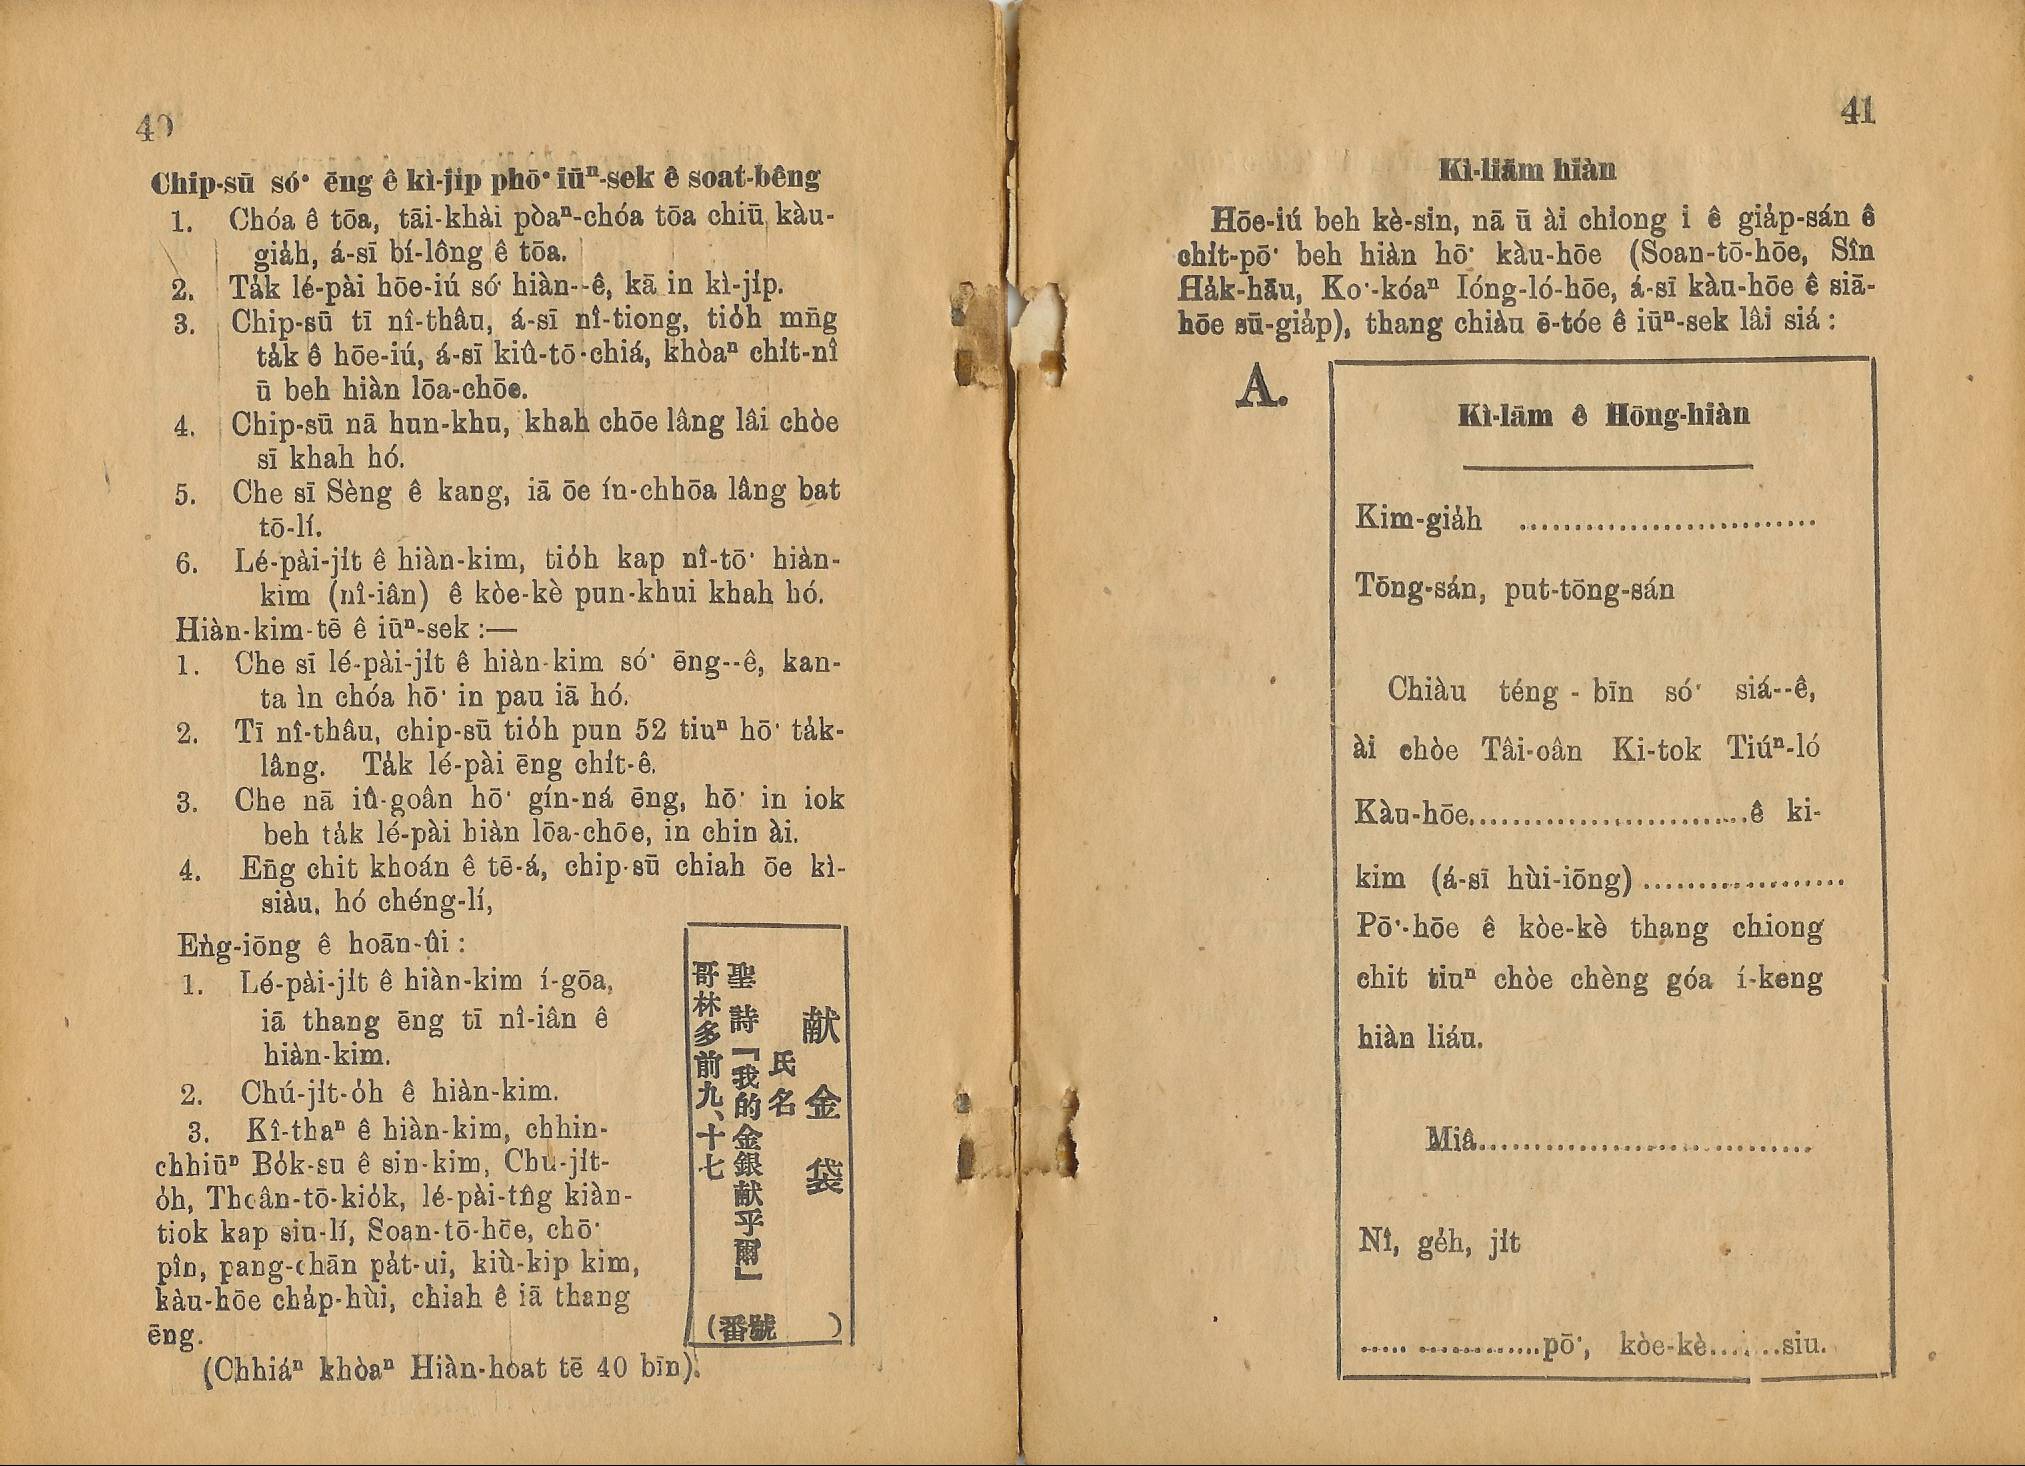 40
Chip-sū só͘ ēng ê kì-ji̍p phō͘ iūⁿ-sek ê soat-bêng
1. Chóa ê tōa, tāi-khài pòaⁿ-chóa tōa chiū kàu-
gia̍h, á-sī bí-lông ê tōa.
2. Ta̍k lé-pài hōe-iú só͘ hiàn--ê, kā in kì-ji̍p.
3. Chip-sū tī nî-thâu, á-sī nî-tiong, tio̍h mn̄g
ta̍k ê hōe-iú, á-sī kiû-tō-chiá, khòaⁿ chi̍t-nî
ū beh hiàn lōa-chōe.
4. Chip-sū nā hun-khu, khah chōe lâng lâi chòe
sī khah hó.
5. Che sī Sèng ê kang, iā ōe ín-chhōa lâng bat
tō-lí.
6. Lé-pài-ji̍t ê hiàn-kim, tio̍h kap nî-tō͘ hiàn-
kim (nî-iân) ê kòe-kè pun-khui khah hó.
Hiàn-kim-tē ê iūⁿ-sek :—
1. Che sī lé-pài-ji̍t ê hiàn-kim só͘ ēng--ê, kan-
ta ìn chóa hō͘ in pau iā hó.
2. Tī nî-thâu, chip-sū tio̍h pun 52 tiuⁿ hō͘ ta̍k-
lâng. Ta̍k lé-pài ēng chi̍t-ê.
3. Che nā iû-goân hō͘ gín-ná ēng, hō͘ in iok
beh ta̍k lé-pài hiàn lōa-chōe, in chin ài.
4. Eng chit khoán ê tē-á, chip-sū chiah ōe kì-
siàu, hó chéng-lí,
Eng-iōng ê hoān-ûi :
1. Lé-pài-ji̍t ê hiàn-kim í-gōa,
iā thang ēng tī nî-iân ê
hiàn-kim.
2. Chú-ji̍t-o̍h ê hiàn-kim.
3. Kî-thaⁿ ê hiàn-kim, chhin-
chhiūⁿ Bo̍k-su ê sin-kim, Chu-ji̍t-
o̍h, Thoân-tō-kio̍k, lé-pài-tn̂g kiàn-
tiok kap siu-lí, Soan-tō-hōe, chō͘
pîn, pang-chān pa̍t-ui, kiù-kip kim,
kàu-hōe cha̍p-hùi, chiah ê iā thang
ēng.
(Chhiáⁿ khòaⁿ Hiàn-hoat tē 40 bīn).
献金袋
氏名
聖詩「我的金銀献乎爾」
哥林多前九、十七
(番號 )
41
Kì-liām hiàn
Hōe-iú beh kè-sin, nā ū ài chiong i ê gia̍p-sán ê
chi̍t-pō͘ beh hiàn hō͘ kàu-hōe (Soan-tō-hōe, Sîn
Ha̍k-hāu, Ko͘-kóaⁿ Ióng-ló-hōe, á-sī kàu-hōe ê siā-
hōe sū-gia̍p), thang chiàu ē-tóe ê iūⁿ-sek lâi siá :
A.
Kì-lām ê Hōng-hiàn
Kim-gia̍h ............................
Tōng-sán, put-tōng-sán
Chiàu téng - bīn só͘ siá--ê,
ài chòe Tâi-oân Ki-tok Tiúⁿ-ló
Kàu-hōe............................ê ki-
kim (á-sī hùi-iōng)...................
Pō͘-hōe ê kòe-kè thang chiong
chit tiuⁿ chòe chèng góa í-keng
hiàn liáu.
Miâ................................
Nî, ge̍h, ji̍t
..... ............pō͘, kòe-kè.......siu.